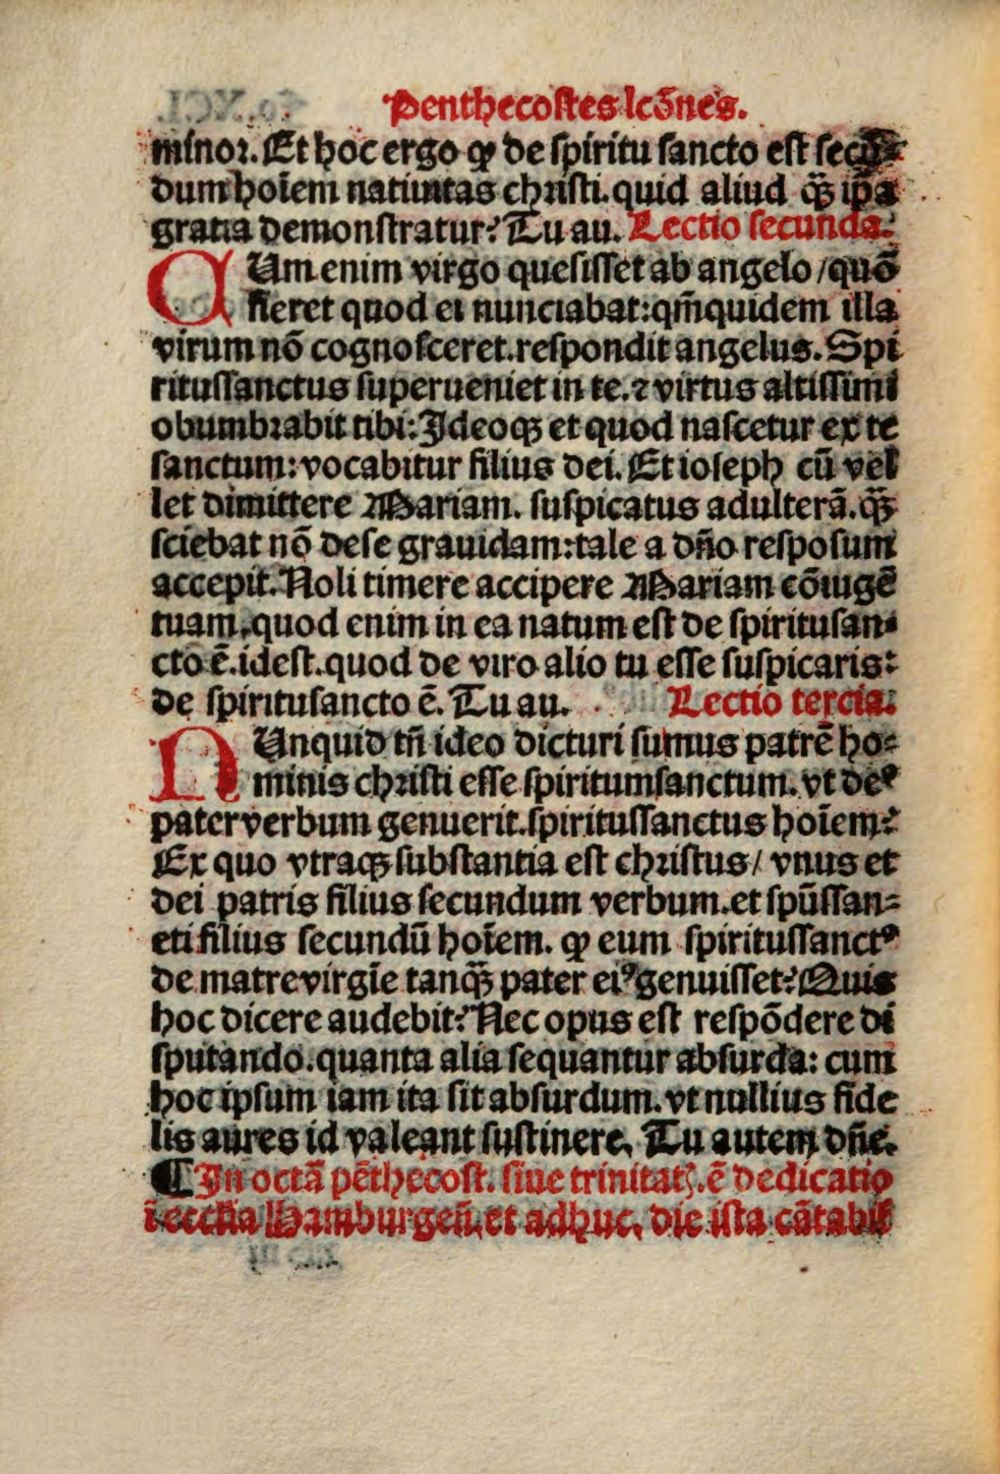 Penthecostes lcōnes.
minor. Et hoc ergo ꝙ de spiritu sancto est secū-
dum hoīem natiuitas christi. quid aliud ꝙ̄ ip̄a
gratia demonstratur? Tu au. Lectio secunda.
CUm enim virgo quesisset ab angelo / quō
fieret quod ei nunciabat: qm̄quidem illa
virum nō cognosceret. respondit angelus. Spi
ritussanctus superueniet in te. ⁊ virtus altissimi
obumbrabit tibi: Ideoqꝫ et quod nascetur ex te
sanctum: vocabitur filius dei. Et ioseph cū vel
let dimittere Mariam. suspicatus adulterā. ꝙ̄
sciebat nō dese grauidam: tale a dn̄o resposum
accepit. Noli timere accipere Mariam cōiugē
tuam. quod enim in ea natum est de spiritusan-
cto ē. idest. quod de viro alio tu esse suspicaris:
de spiritusancto ē. Tu au. Lectio tercia.
NUnquid tn̄ ideo dicturi sumus patrē ho-
minis christi esse spiritumsanctum. vt deꝰ
pater verbum genuerit. spiritussanctus hoīem?
Ex quo vtraqꝫ substantia est christus / vnus et
dei patris filius secundum verbum. et spūssan-
cti filius secundū hoīem. ꝙ eum spiritussanctꝰ
de matre virgīe tanꝙ̄ pater eiꝰ genuisset? Quis
hoc dicere audebit? Nec opus est respōdere di
sputando. quanta alia sequantur absurda: cum
hoc ipsum iam ita sit absurdum. vt nullius fide
lis aures id valeant sustinere. Tu autem dn̄e.
¶ In octā pēthecost. siue trinitatꝭ. ē dedicatio
ī eccl̄ia Hamburgen̄. et adhuc. die ista cātabiꝉ